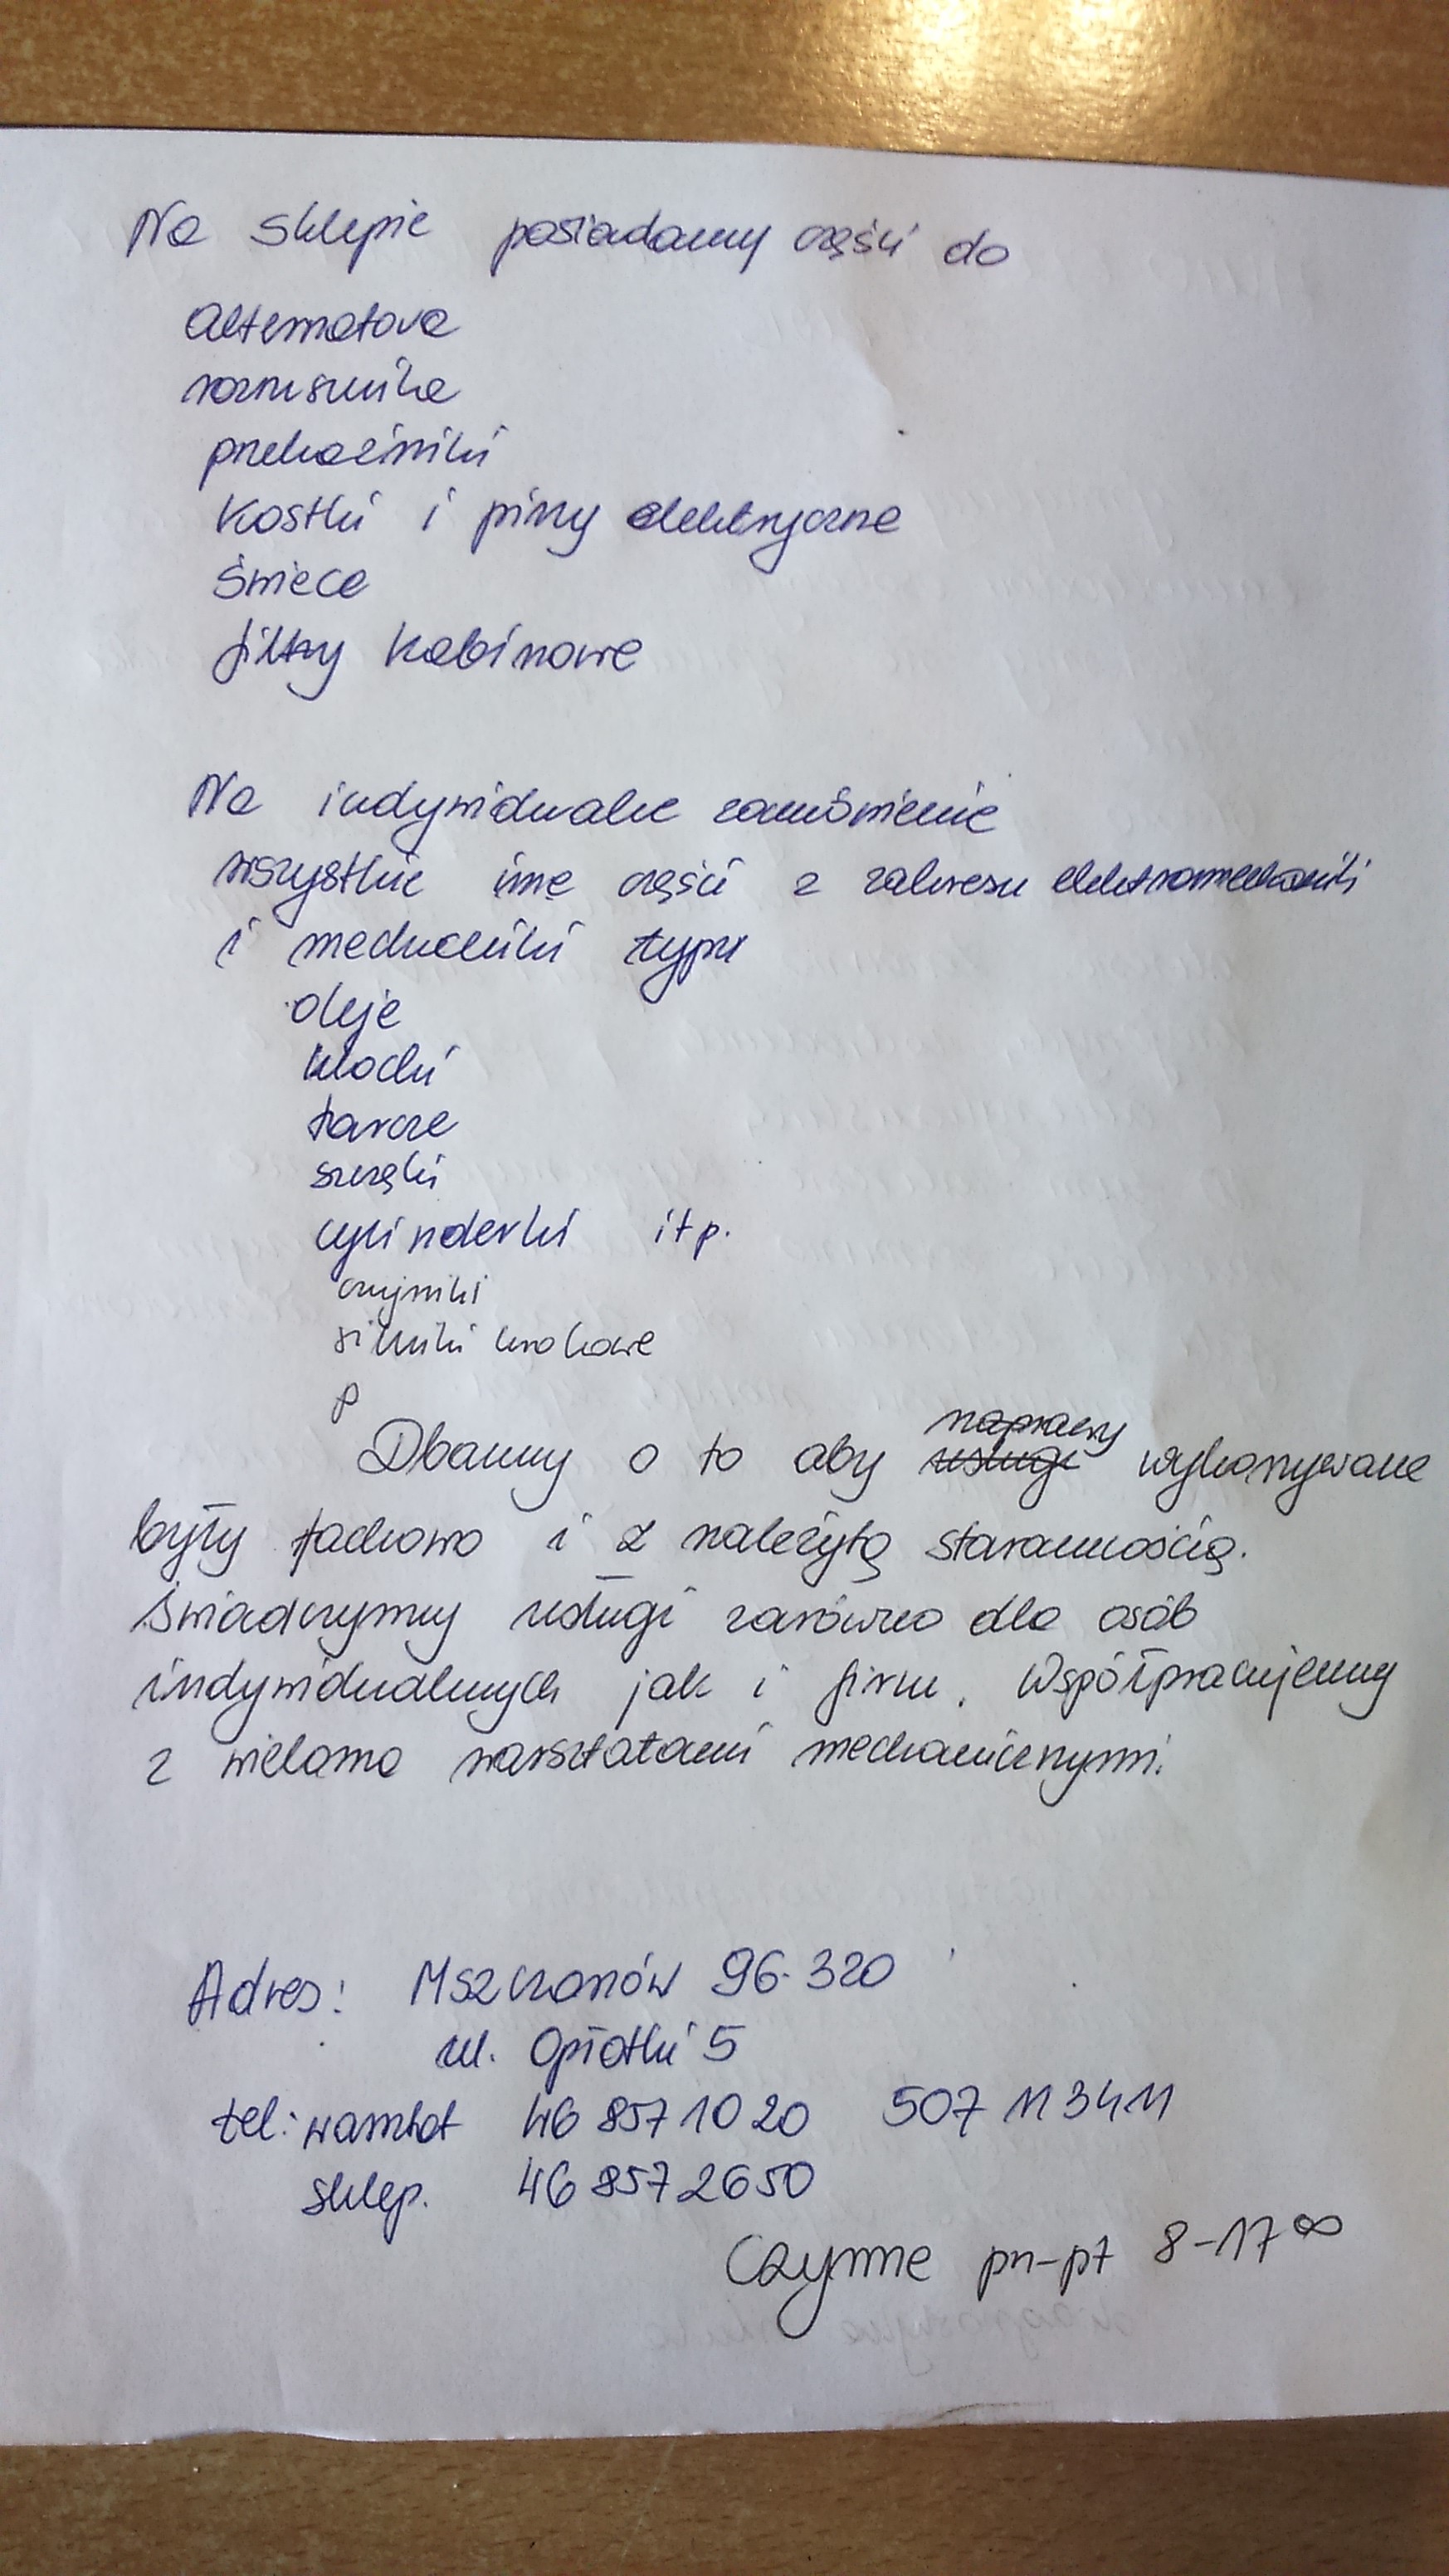 Na sklepie posiadamy części do
alternatora
rozrusznika
przekaźniki
Kostki i piny elektryczne
Świece
filtry kabinowe
Na indywidualne zamówienie
wszystkie inne części z zakresu elektromechaniki
i mechaniki typu
oleje
klocki
tarcze
szczęki
cylinderki itp.
czujniki
silniki krokowe
p
naprawy
Dbamy o to aby usługi wykonywane
były fachowo i z należytą starannością.
Świadczymy usługi zarówno dla osób
indywidualnych jak i firm. Współpracujemy
z wieloma warsztatami mechanicznymi.
Adres: Mszczonów 96-320
ul. Opłotki 5
tel: warsztat 46 857 10 20 507 11 34 11
sklep. 46 857 26 50
Czynne pn-pt 8-17 00